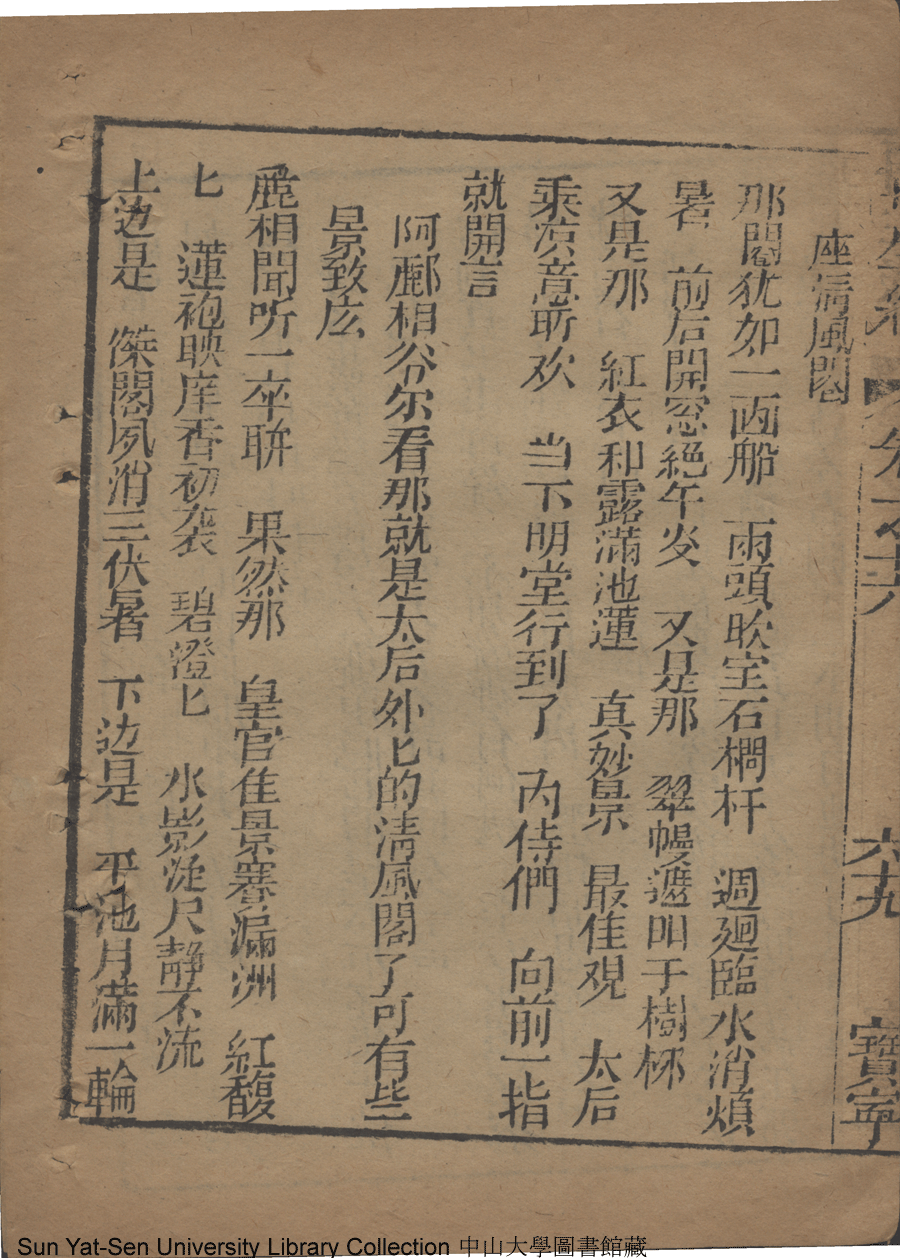 座清風閣
那閣犹如一画船　兩頭砍宝石櫚杆　週廻臨水消煩
暑　前后開窓絕午炎　又是那　翠幔遮　千樹栁
又是那　紅衣和露滿池蓮　真妙景　最佳覌　太后
乘凉意斯欢　当下明堂行到了　內侍們　向前一指
就開言
阿酈相爷尔看那就是太后外匕的清風閣了可有些
景致庅
麗相聞听一卒聨　果然那　皇宫佳景賽瀛洲　紅馥
匕　蓮袍映岸香初袭　碧澄匕　水影淀尺靜不流
上边是　傑閣夙消三伏暑　下边是　平池月滿一輪
卷六十六
六十九
寶寧
Sun Yat-Sen University Library Collection 中山大學圖書館藏